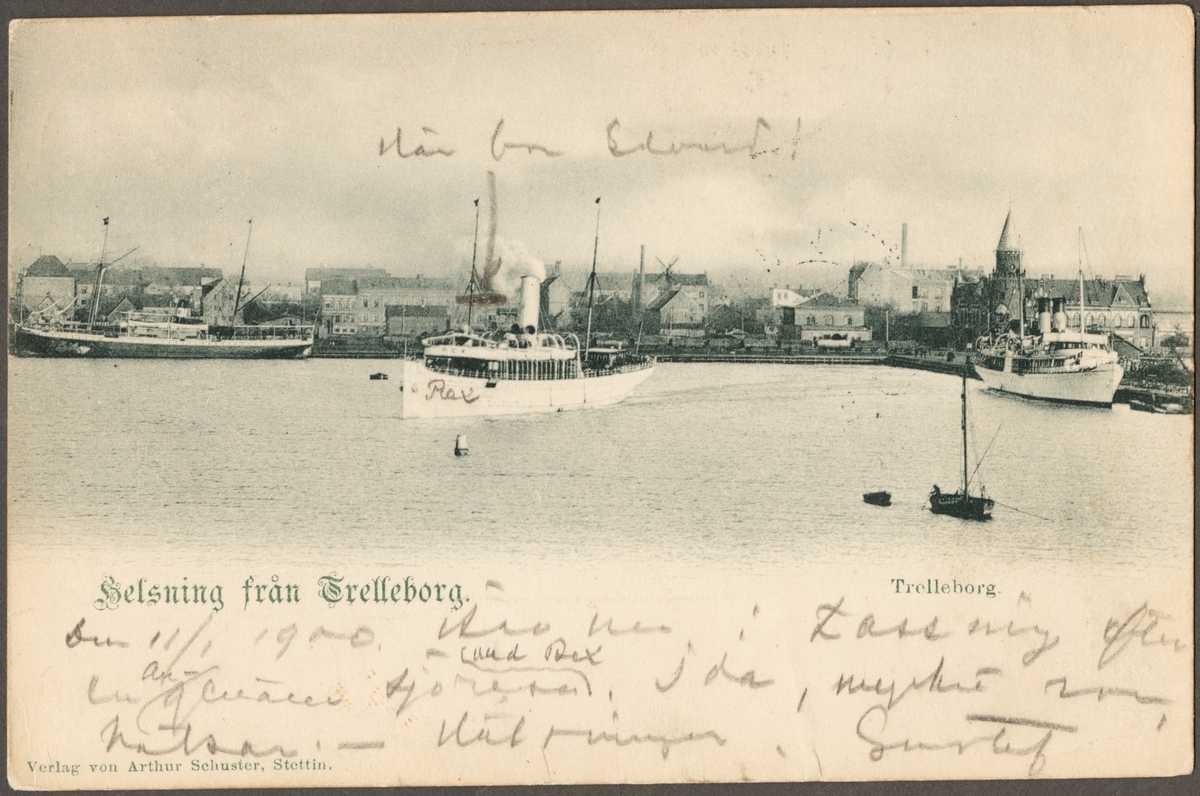 Här bor Edvard!
Rex
Helsning från Trelleborg.
Trelleborg.
Den 11/1 1900. Här nu i Zassnitz efter
(med Rex)
en angenäm sjöresa. Ida, mycket rar,
hälsar. — Hälsningar. Gustef
Verlag von Arthur Schuster, Stettin.